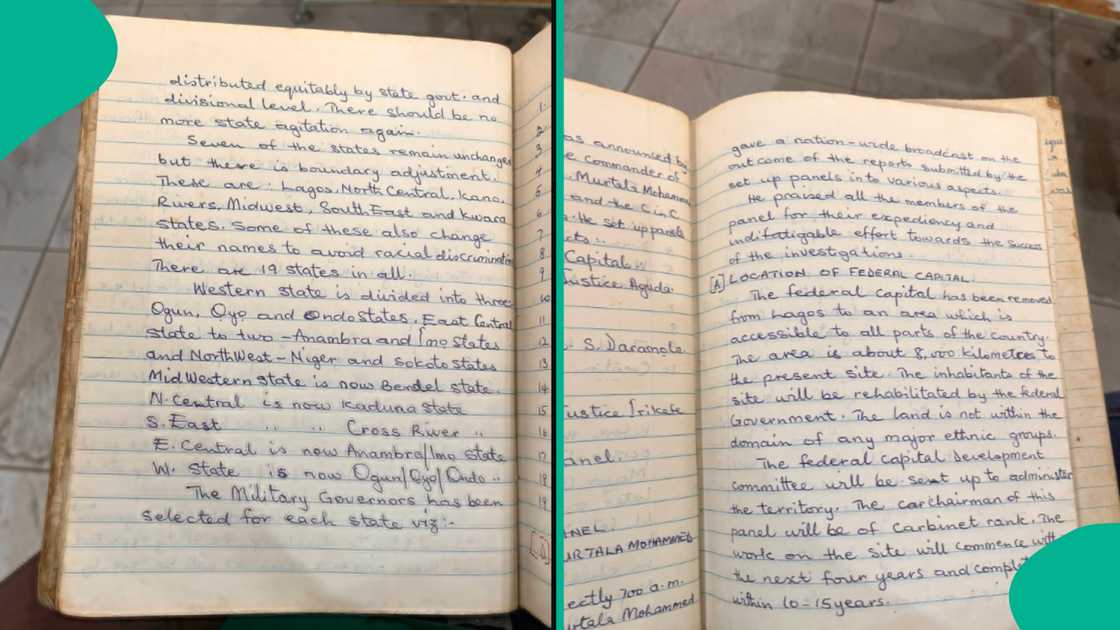 distributed equitably by state govt. and
divisional level. There should be no
more state agitation again.
Seven of the states remain unchange
but there is boundary adjustment.
These are : Lagos, North Central, Kano,
Rivers, Midwest, South East and Kwara
states. Some of these also change
their names to avoid racial discrimination
There are 19 states in all.
Western state is divided into three
Ogun, Oyo and Ondo states, East Central
state to two - Anambra and Imo states
and North West - Niger and Sokoto states
Mid Western state is now Bendel state.
N. Central is now Kaduna state
S. East " " Cross River "
E. Central is now Anambra/Imo state
W. State is now Ogun/Oyo/Ondo "
The Military Governors has been
selected for each state viz:-
1.
2.
3
4
5
6
7
8
9
10
11
12
13
14
15
16
17
18
19
as announced by
e commander of
. Murtala Mohamm
and the C in C
. He set up panels
cts :.
Capital
Justice Aguda.
. S. Daramola
Justice Irikefe
anel.
NEL
URTALA MOHAMMED
ectly 700 a.m.
rtala Mohammed
gave a nation-wide broadcast on the
out come of the reports submitted by the
set up panels into various aspects.
He praised all the members of the
panel for their expediency and
indifatigable effort towards the success
of the investigations.
[A] LOCATION OF FEDERAL CAPITAL.
The federal capital has been removed
from Lagos to an area which is
accessible to all parts of the country.
The area is about 8,000 kilometres to
the present site. The inhabitants of the
site will be rehabilitated by the federal
Government. The land is not within the
domain of any major ethnic groups.
The federal capital development
committee will be set up to administer
the territory. The chairman of this
panel will be of Carbinet rank. The
work on the site will commence with
the next four years and complet
within 10-15 years.